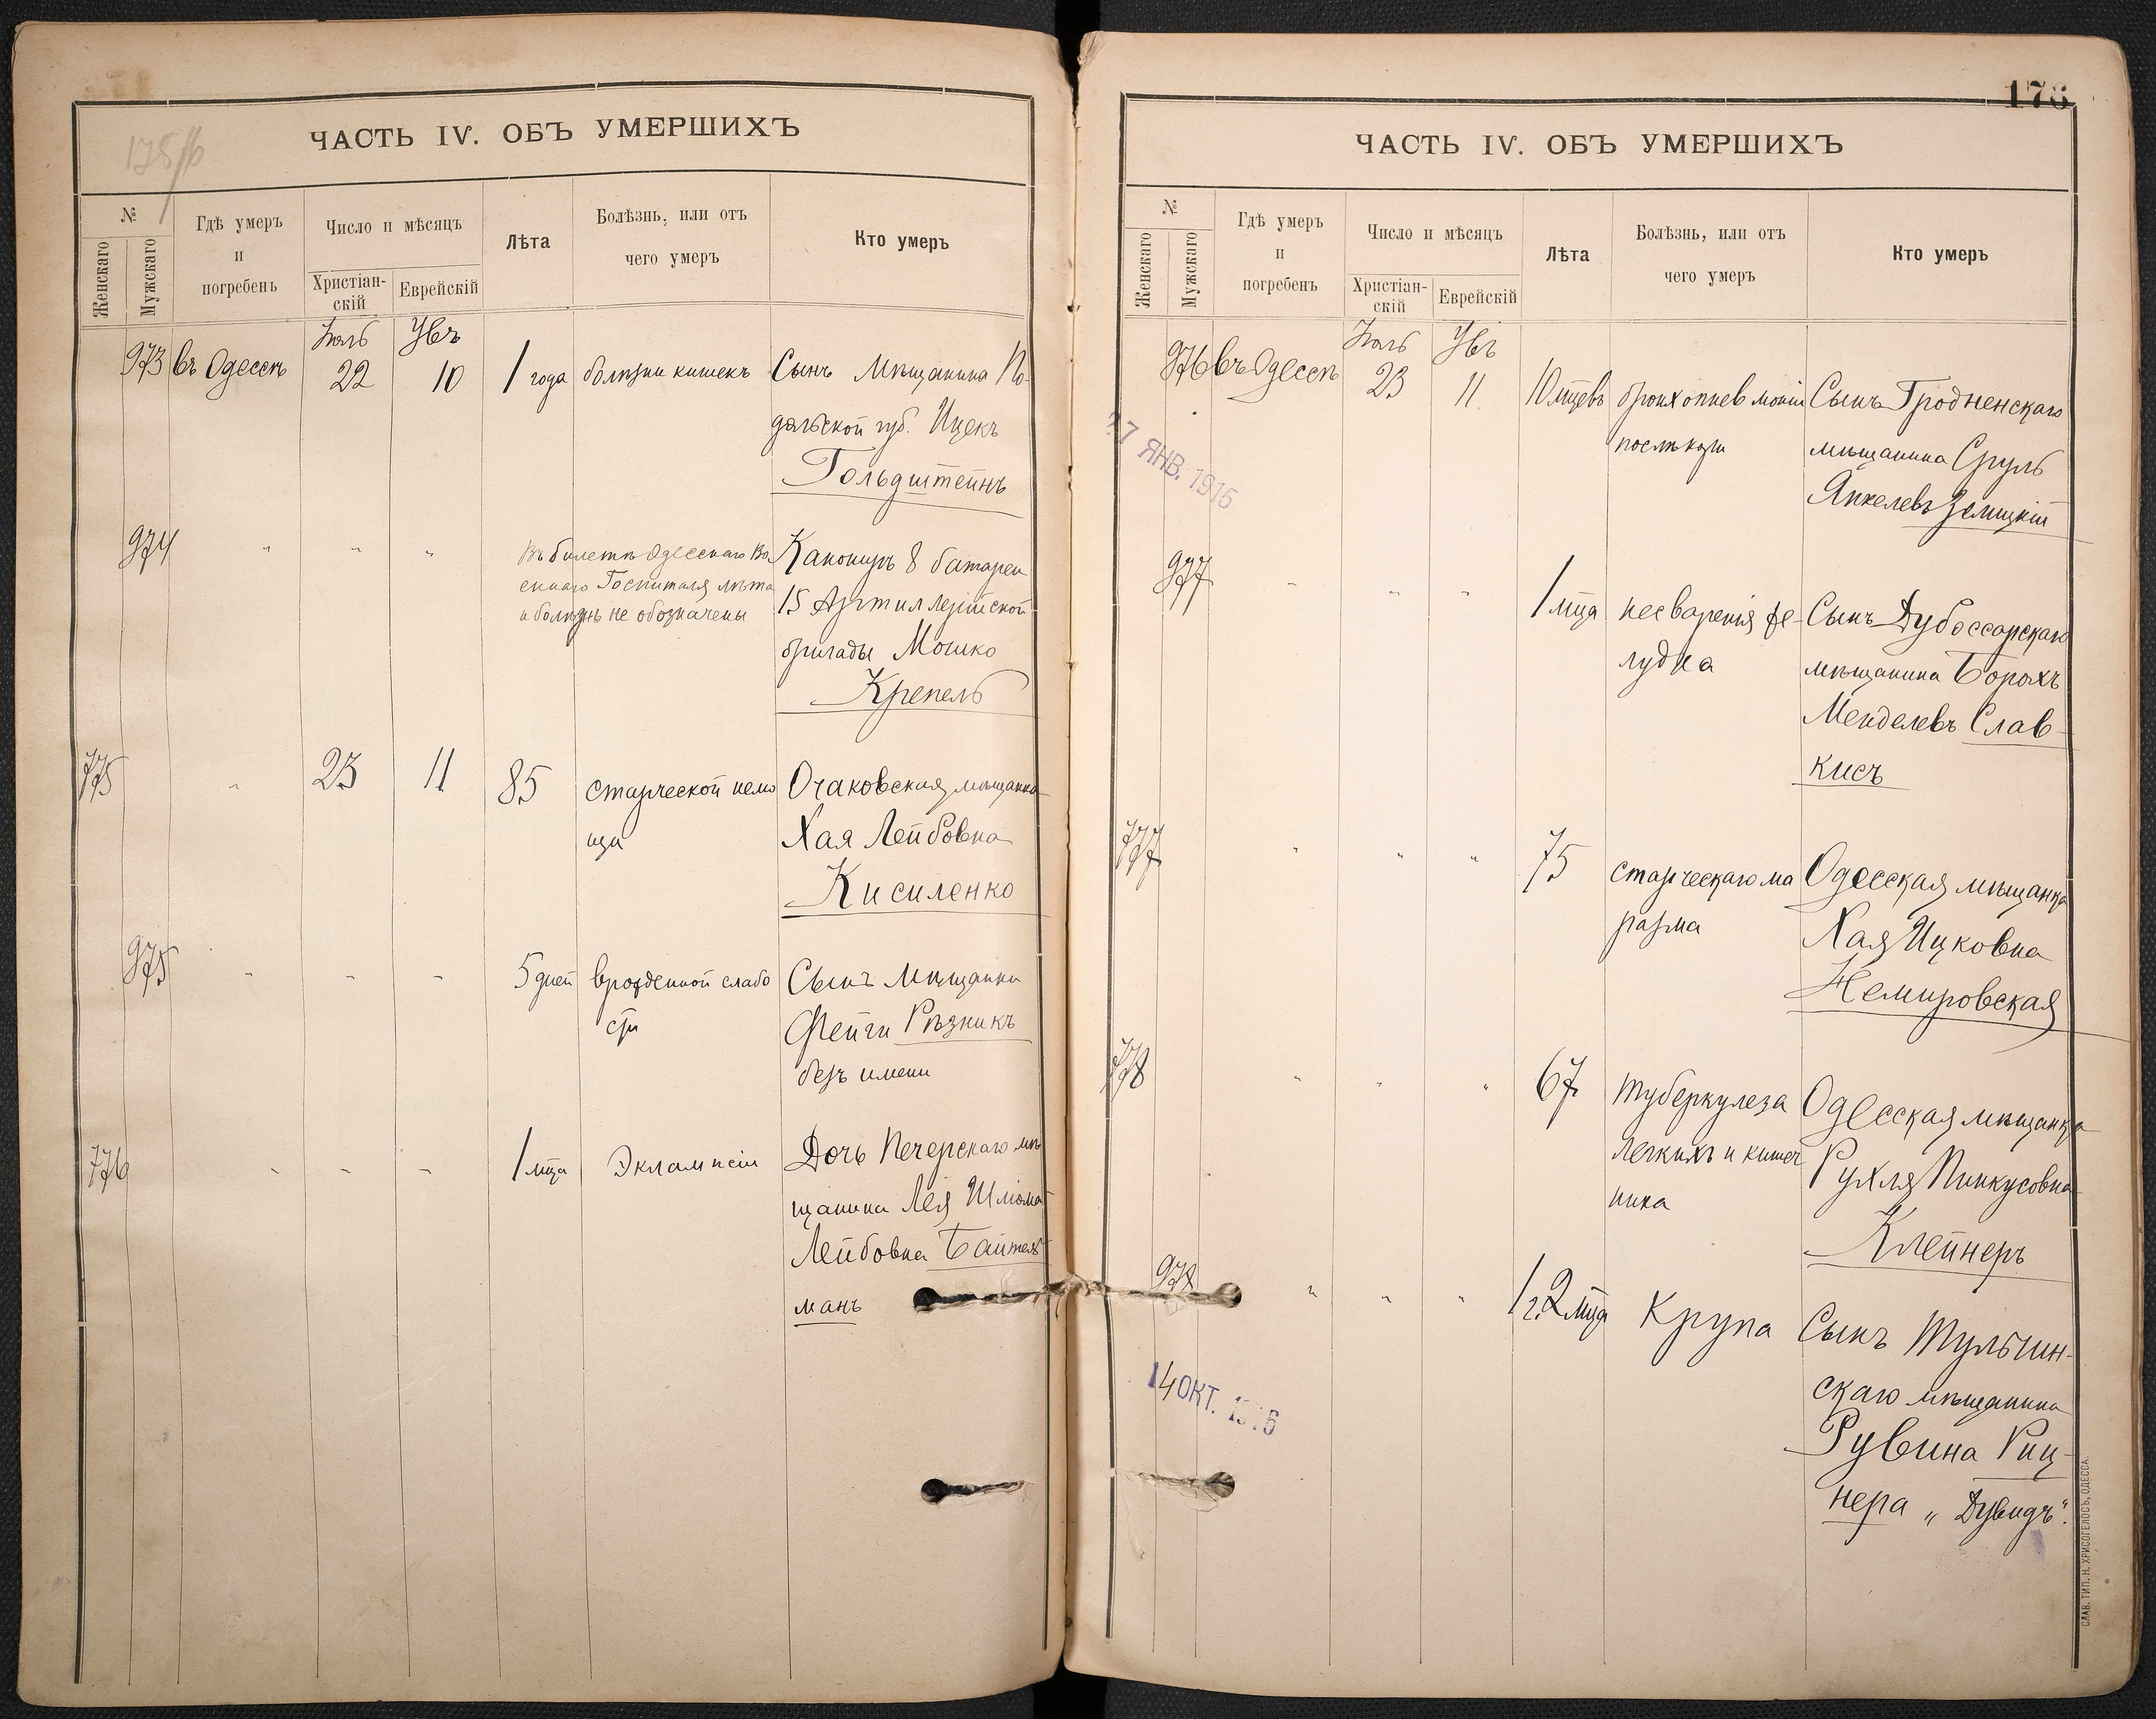 175/б
ЧАСТЬ IV. ОБЪ УМЕРШИХЪ
№
Женскаго
Мужскаго
Гдѣ умеръ
и
погребенъ
Число и мѣсяцъ
Христіан-
скій
Еврейскій
Лѣта
Болѣзнь, или отъ
чего умеръ
Кто умеръ
Іюль
973 въ Одессѣ 22 10 1 года болѣзни кишекъ Сынъ Мѣщанина По-
дольской губ. Ицекъ
Гольдштейнъ
974 " " " Въ билетѣ Одесскаго Во Канониръ 8 батареи
еннаго Госпиталя лѣта 15 Артиллерійской
и болѣзнь не обозначены бригады Мошко
Крепель
775 " 23 11 85 старческой немо Очаковская мѣщанка
щи Хая Лейбовна
Кисиленко
975 " " " 5 дней врожденной слабо Сынъ Мѣщанки
сти Фейги Рѣзникъ
безъ имени
776 " " " 1 мца Эклампсіи Дочь Печерскаго мѣ
щанина Лея Шліома
Лейбовна Байтель
манъ
176
ЧАСТЬ IV. ОБЪ УМЕРШИХЪ
№
Женскаго
Мужскаго
Гдѣ умеръ
и
погребенъ
Число и мѣсяцъ
Христіан-
скій
Еврейскій
Лѣта
Болѣзнь, или отъ
чего умеръ
Кто умеръ
Іюль
976 въ Одессѣ 23 11 10 мцевъ бронхопневмоніи Сынъ Гродненскаго
послѣ кори мѣщанина Сруль
Янкелевъ Земицкій
7 ЯНВ. 1915
977 " " " 1 мца несваренія же- Сынъ Дубоссарскаго
лудка мѣщанина Борохъ
Менделевъ Слав-
кисъ
777 " " " 75 старческаго ма Одесская мѣщанка
разма Хая Ицковна
Немировская
778 " " " 67 туберкулеза Одесская мѣщанка
легкихъ и кишеч Рухля Пинкусовна
ника Клейнеръ
978 " " " 1 г. 2 мца Крупа Сынъ Тульчин-
скаго мѣщанина
Рувина Риц-
нера „Дувидъ".
14 ОКТ.
СЛАВ. ТИП. Н. ХРИСОГЕЛОСЪ, ОДЕССА.